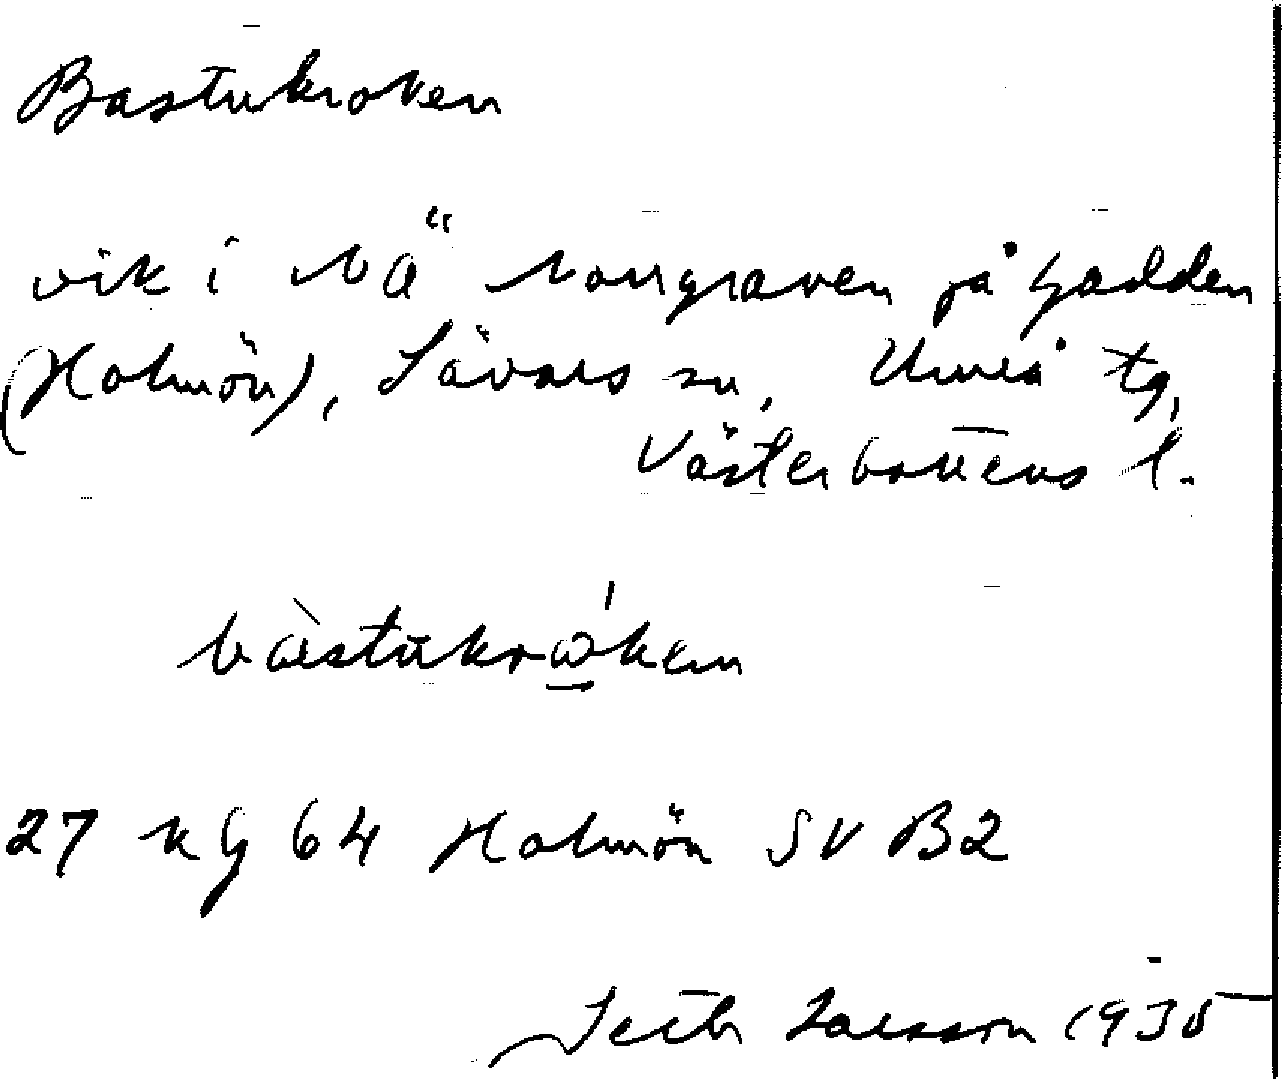 Bastukroken
vik i NÄ Norrgraven på Gadden
(Holmön), Sävars sn, Umeå tg,
Västerbottens l.
27 kg 64 Holmön SV B2
Seth Larsson 1935